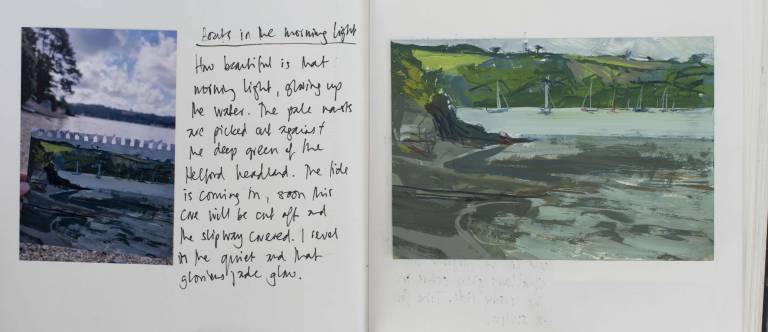 Boats in the morning light
How beautiful is that
morning light, glowing up
the water. The pale masts
are picked out against
the deep green of the
Helford headland. The tide
is coming in, soon this
cove will be cut off and
the slipway covered. I revel
in the quiet and that
glorious jade glow.